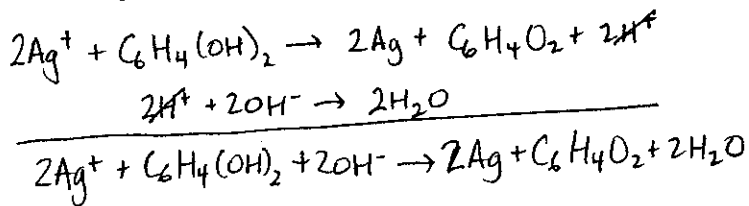 2Ag⁺ + C₆H₄(OH)₂ → 2Ag + C₆H₄O₂ + 2H⁺
2H⁺ + 2OH⁻ → 2H₂O
2Ag⁺ + C₆H₄(OH)₂ + 2OH⁻ → 2Ag + C₆H₄O₂ + 2H₂O